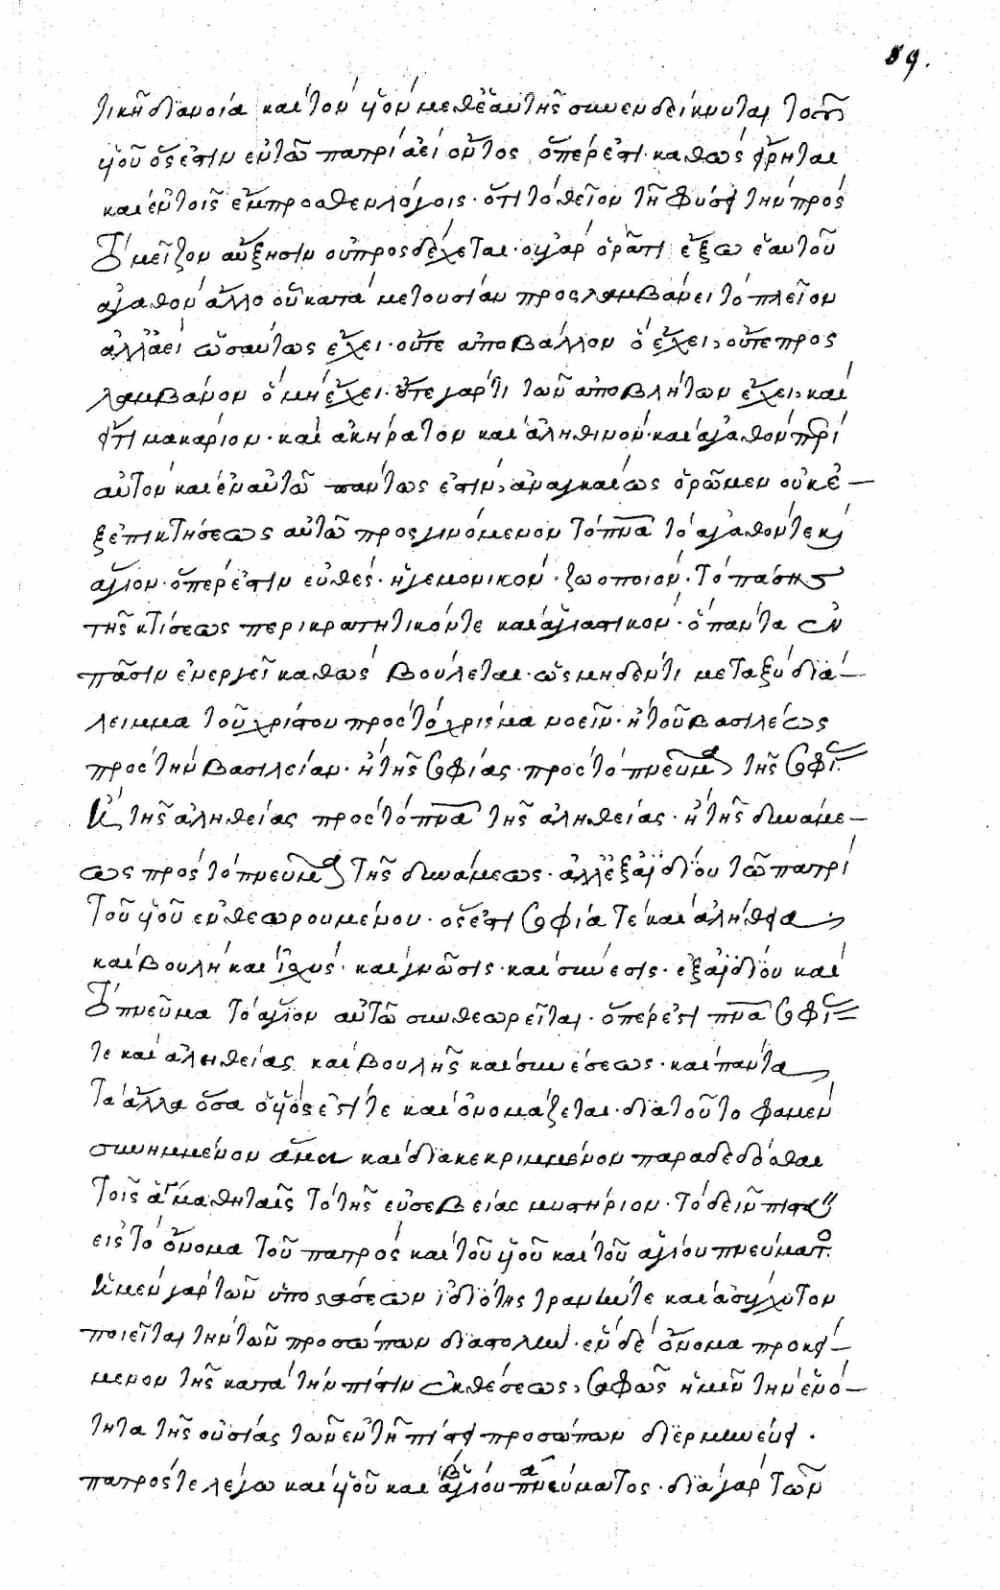 89.
τικῆ διανοία καὶ τὸν υἱὸν μεθ' ἑαυτῆς συνενδείκνυται τοῦ
υἱοῦ ὅς ἐστιν ἐν τῶ πατρὶ ἀεὶ ὄντος ὅπερ ἐστι· καθὼς εἴρηται
καὶ ἐν τοῖς ἔμπροσθεν λόγοις· ὅτι τὸ θεῖον τῆ φύσει τὴν πρὸς
τὸ μεῖζον αὔξησιν οὐ προσδέχεται· οὐ γὰρ ὁρᾶ τι ἔξω ἑαυτοῦ
ἀγαθὸν ἄλλο οὗ κατὰ μετουσίαν προσλαμβάνει τὸ πλεῖον
ἀλλ' ἀεὶ ὡσαύτως ἔχει· οὔτε ἀποβάλλον ὃ ἔχει, οὔτε προσ
λαμβάνον ὃ μὴ ἔχει· οὔτε γάρ τι τῶν ἀποβλήτων ἔχει, καὶ
εἴ τι μακάριον· καὶ ἀκήρατον καὶ ἀληθινὸν· καὶ ἀγαθὸν περὶ
αὐτὸν καὶ ἐν αὐτῶ πάντως ἐστὶν, ἀναγκαίως ὁρῶμεν οὐκ ἐ-
ξ ἐπικτήσεως αὐτῶ προσγινόμενον τὸ πνα τὸ ἀγαθόν τε κὶ
ἅγιον· ὅπερ ἐστὶν εὐθὲς· ἡγεμονικὸν· ζωοποιὸν· τὸ πάσης
τῆς κτίσεως περικρατητικόν τε καὶ ἁγιαστικὸν· ὃ πάντα ἐν
πᾶσιν ἐνεργεῖ καθὼς βούλεται· ὡς μηδέν τι μεταξὺ διά-
λειμμα τοῦ χριστου πρὸς τὸ χρίσμα νοεῖν· ἢ τοῦ βασιλέως
πρὸς τὴν βασιλείαν· ἢ τῆς σοφίας· πρὸς τὸ πνεῦμα τῆς σοφί.
ἢ τῆς ἀληθείας πρὸς τὸ πνα τῆς ἀληθείας· ἢ τῆς δυνάμε-
ως πρὸς τὸ πνεῦμα τῆς δυνάμεως· ἀλλ' ἐξ ἀϊδίου τῶ πατρὶ
τοῦ υἱοῦ ἐνθεωρουμένου· ὅς ἐστι σοφία τε καὶ ἀλήθεια,
καὶ βουλὴ καὶ ἰσχὺς· καὶ γνῶσις· καὶ σύνεσις· ἐξ ἀϊδίου καὶ
τὸ πνεῦμα τὸ ἅγιον αὐτῶ συνθεωρεῖται· ὅπερ ἐστι πνα σοφί=
τε καὶ ἀληθείας καὶ βουλῆς καὶ συνέσεως· καὶ πάντα
τὰ ἄλλα ὅσα ὁ υἱός ἐστί τε καὶ ὀνομάζεται· διὰ τοῦτο φαμὲν
συνημμένον ἅμα καὶ διακεκριμμένον παραδεδόσθαι
τοῖς ἁγ' μαθηταῖς τὸ τῆς εὐσεβείας μυστήριον· τὸ δεῖν πιστεύ
εἰς τὸ ὄνομα τοῦ πατρὸς καὶ τοῦ υἱοῦ καὶ τοῦ ἁγίου πνεύματο.
ἡ μὲν γὰρ τῶν ὑποστάσεων ἰδιότης τρανήν τε καὶ ἀσύγχυτον
ποιεῖται τὴν τῶν προσώπων διαστολὴν· ἓν δὲ ὄνομα προκεί-
μενον τῆς κατὰ τὴν πίστιν ἐκθέσεως, σαφῶς ἡμῖν τὴν ἑνό-
τητα τῆς οὐσίας τῶν ἐν τῆ πίστει προσώπων διερμηνεύει·
πατρός τε λέγω καὶ υἱοῦ καὶ ἁγίου πνεύματος· διὰ γὰρ τῶν